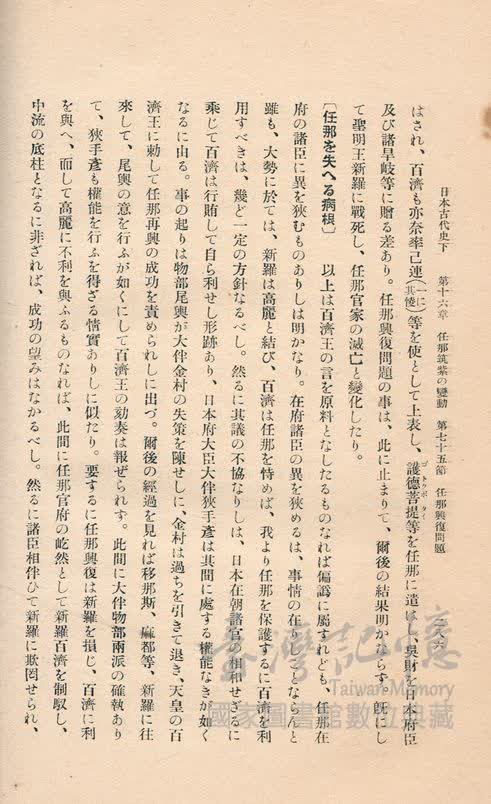 日本古代史下　第十六章　任那筑紫の變動　第七十五節　任那興復問題　二八六
はされ、百濟も亦奈率己連(一に其㥄)等を使として上表し、護德菩提等を任那に遣はし、吳財を日本府臣
ゴトウボダイ
及び諸旱岐等に贈る差あり。任那興復問題の事は、此に止まりて、爾後の結果明かならず。旣にし
て聖明王新羅に戰死し、任那官家の滅亡と變化したり。
〔任那を失へる病根〕　以上は百濟王の言を原料となしたるものなれば偏譌に屬すれども、任那在
府の諸臣に異を狹むものありしは明かなり。在府諸臣の異を狹めるは、事情の在るところならんと
雖も、大勢に於ては、新羅は高麗と結び、百濟は任那を恃めば、我より任那を保護するに百濟を利
用すべきは、幾ど一定の方針なるべし。然るに其議の不協なりしは、日本在朝諸官の相和せざるに
乘じて百濟は行賄して自ら利せし形跡あり、日本府大臣大伴狹手彥は其間に處する權能なきが如く
なるに由る。事の起りは物部尾輿が大伴金村の失策を陳せしに、金村は過ちを引きて退き、天皇の百
濟王に勅して任那再興の成功を責められしに出づ。爾後の經過を見れば移那斯、麻都等、新羅に往
來して、尾輿の意を行ふが如くにして百濟王の劾奏は報ぜられす。此間に大伴物部兩派の確執あり
て、狹手彥も權能を行ふを得ざる情實ありしに似たり。要するに任那興復は新羅を損じ、百濟に利
を與へ、而して高麗に不利を與ふるものなれば、此間に任那官府の屹然として新羅百濟を制馭し、
中流の底柱となるに非ざれば、成功の望みはなかるべし。然るに諸臣相伴ひて新羅に欺罔せられ、
臺灣記憶
Taiwan Memory
國家圖書館數位典藏